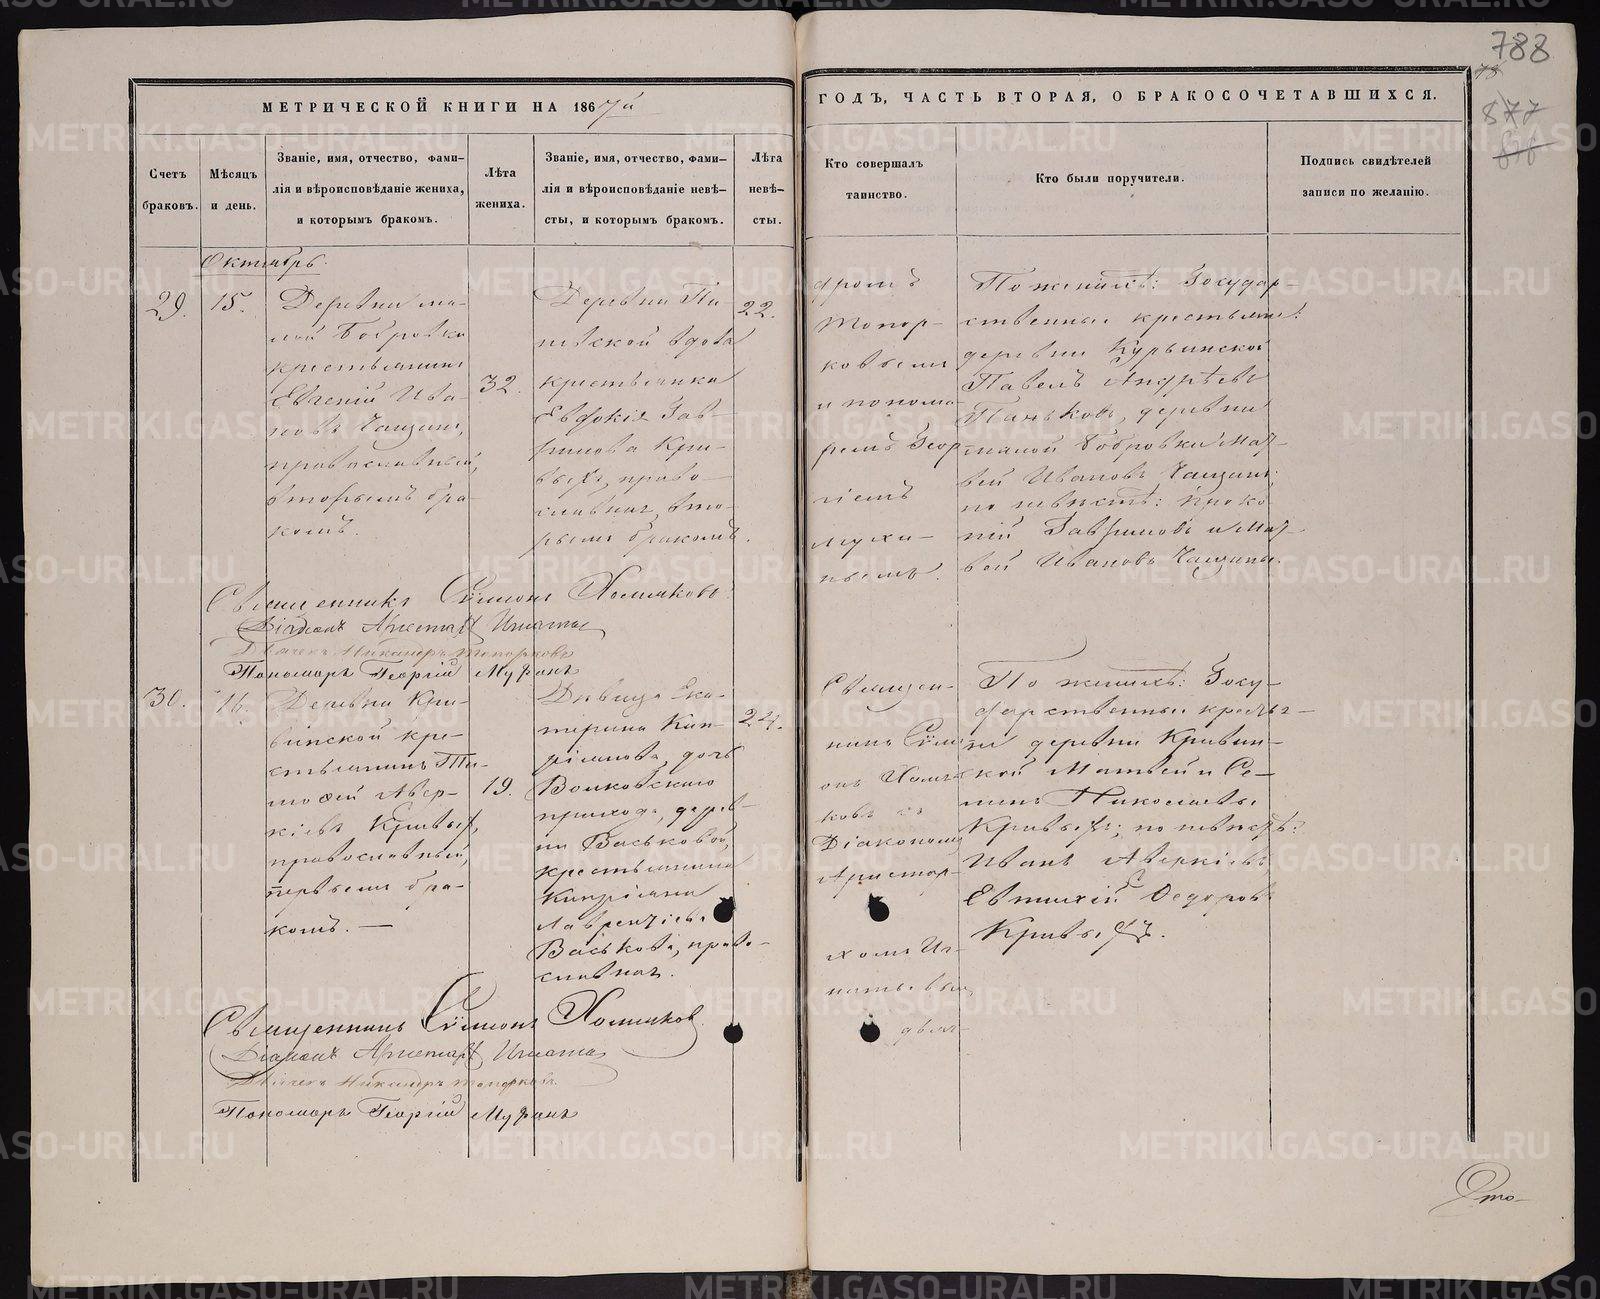 788
78
877
878
МЕТРИЧЕСКОЙ КНИГИ НА 1867й
ГОДЪ, ЧАСТЬ ВТОРАЯ, О БРАКОСОЧЕТАВШИХСЯ.
Счетъ
браковъ.
Мѣсяцъ
и день.
Званіе, имя, отчество, фами-
лія и вѣроисповѣданіе жениха,
и которымъ бракомъ.
Лѣта
жениха.
Званіе, имя, отчество, фами-
лія и вѣроисповѣданіе невѣ-
сты, и которымъ бракомъ.
Лѣта
невѣ-
сты.
Кто совершалъ
таинство.
Кто были поручители.
Подпись свидѣтелей
записи по желанію.
Октябрь.
29.
15.
Деревни ма-
лой Бобровки
крестьянинъ
Евгеній Ива-
новъ Чащинъ,
православный,
вторымъ бра-
комъ.
32.
Деревни
вдова
крестьянка
Евдокія Гав-
рилова Кри-
выхъ, право-
славная, вто-
рымъ бракомъ.
22.
дромъ
Топор-
ковымъ
и понома-
ремъ Геор-
гіемъ
Мухи-
нымъ.
По женихѣ: Государ-
ственные крестьяне:
деревни Курьинской
Павелъ Андрѣевъ
Паньковъ, деревни
малой Бобровки Мат-
вей Ивановъ Чащинъ;
по невѣстѣ: Проко-
пій Гавриловъ и Мат-
вей Ивановъ Чащины.
Священникъ Сѵмеонъ Хомяковъ.
Діаконъ Аристархъ Игнатьевъ
Дьячекъ Никандръ Топорковъ
Пономарь Георгій Мухинъ
30.
16.
Деревни Кри-
винской кре-
стьянинъ Ти-
моѳей Авер-
кіевъ Кривыхъ,
православный,
первымъ бра-
комъ.
19.
Дѣвица Ека-
терина Кип-
ріянова, дочь
Волковскаго
прихода, дерев-
ни Васьковой,
крестьянина
Кипріяна
Лаврентьева
Васькова, право-
славная.
24.
Священ-
никъ Сѵме-
онъ Хомя-
ковъ съ
Діакономъ
Аристар-
хомъ Иг-
натьевымъ
дьяч-
По женихѣ: Госу-
дарственные крестья-
не деревни Кривин-
ской Матвей и Се-
менъ Николаевы
Кривыхъ; по невѣстѣ:
Иванъ Аверкіевъ
Евтихій Ѳедоровъ
Кривыхъ.
Священникъ Сѵмеонъ Хомяковъ.
Діаконъ Аристархъ Игнатьевъ
Дьячекъ Никандръ Топорковъ.
Пономарь Георгій Мухинъ
METRIKI.GASO-URAL.RU